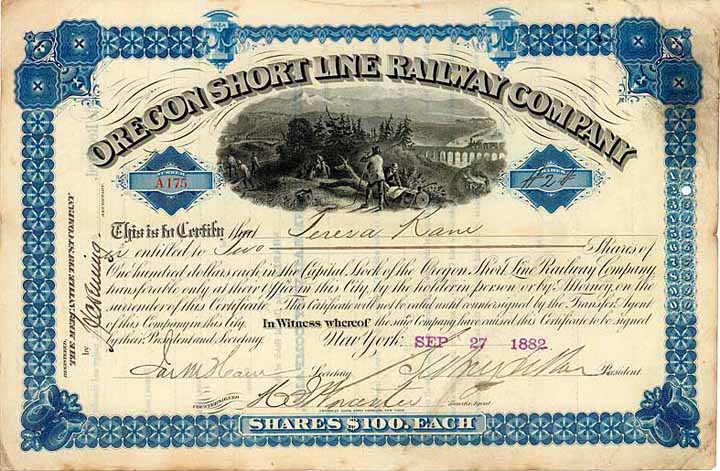 OREGON SHORT LINE RAILWAY COMPANY
NUMBER
A175
SHARES
2
This is to Certify that Teresa Kane
is entitled to Two Shares of
One hundred dollars each, in the Capital Stock of the Oregon Short Line Railway Company,
transferable only at their Office in this City, by the holder in person or by Attorney, on the
surrender of this Certificate. This Certificate will not be valid until countersigned by the Transfer Agent
of this Company in this City. In Witness whereof the said Company have caused this Certificate to be signed
by their President and Secretary.
New York: SEP 27 1882
Secretary President
COUNTERSIGNED
Transfer Agent
AMERICAN BANK NOTE COMPANY, NEW YORK
SHARES $100. EACH
REGISTERED,
THE MERCANTILE TRUST COMPANY
by
SECRETARY